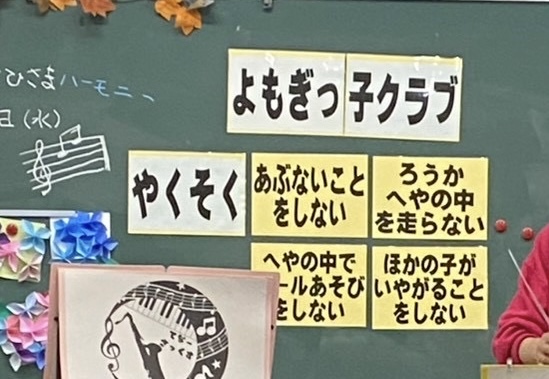 ひさまハーモニー
日(水)
よもぎっ子クラブ
やくそく
あぶないこと
をしない
ろうか
へやの中
を走らない
へやの中で
ールあそび
をしない
ほかの子が
いやがること
をしない